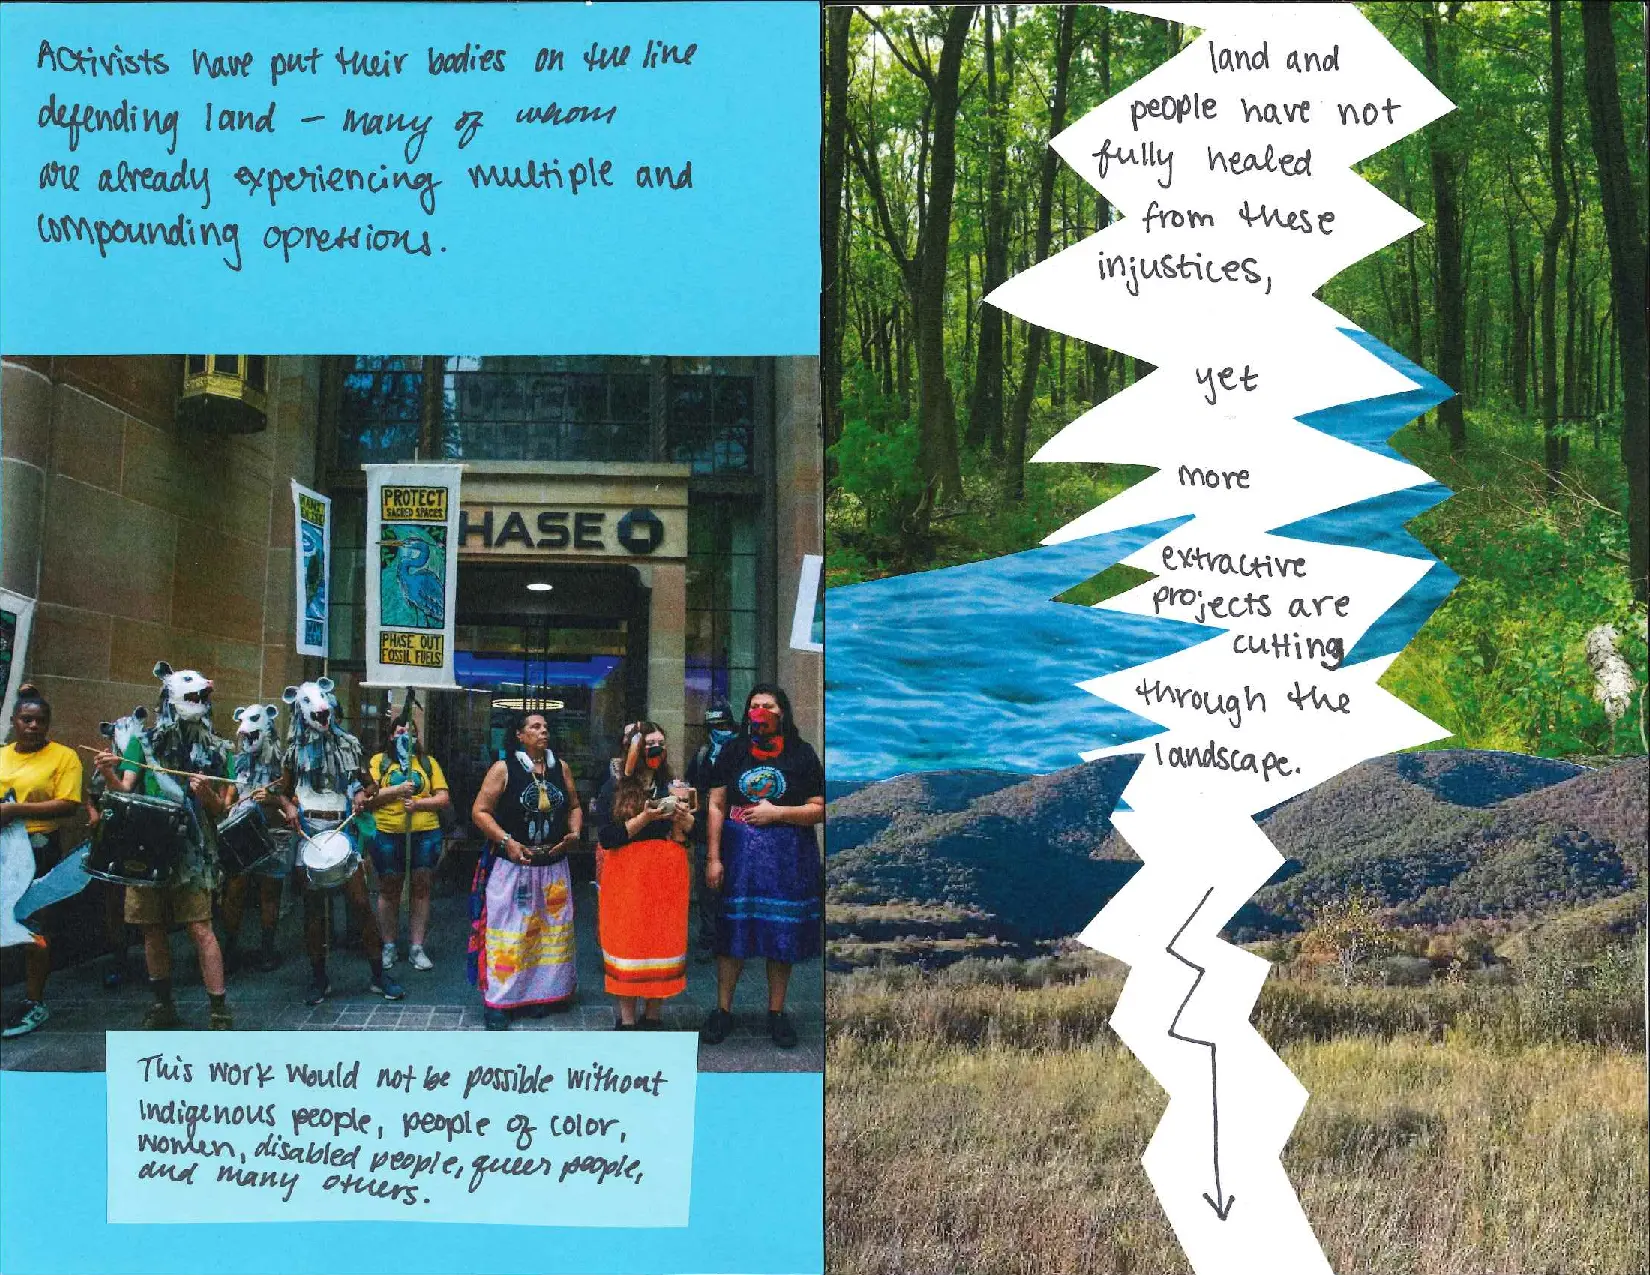 Activists have put their bodies on the line
defending land – many of whom
are already experiencing multiple and
compounding opressions.
PROTECT
SACRED SPACES
PHASE OUT
FOSSIL FUELS
HASE
This work would not be possible without
Indigenous people, people of color,
women, disabled people, queer people,
and many others.
land and
people have not
fully healed
from these
injustices,
yet
more
extractive
projects are
cutting
through the
landscape.